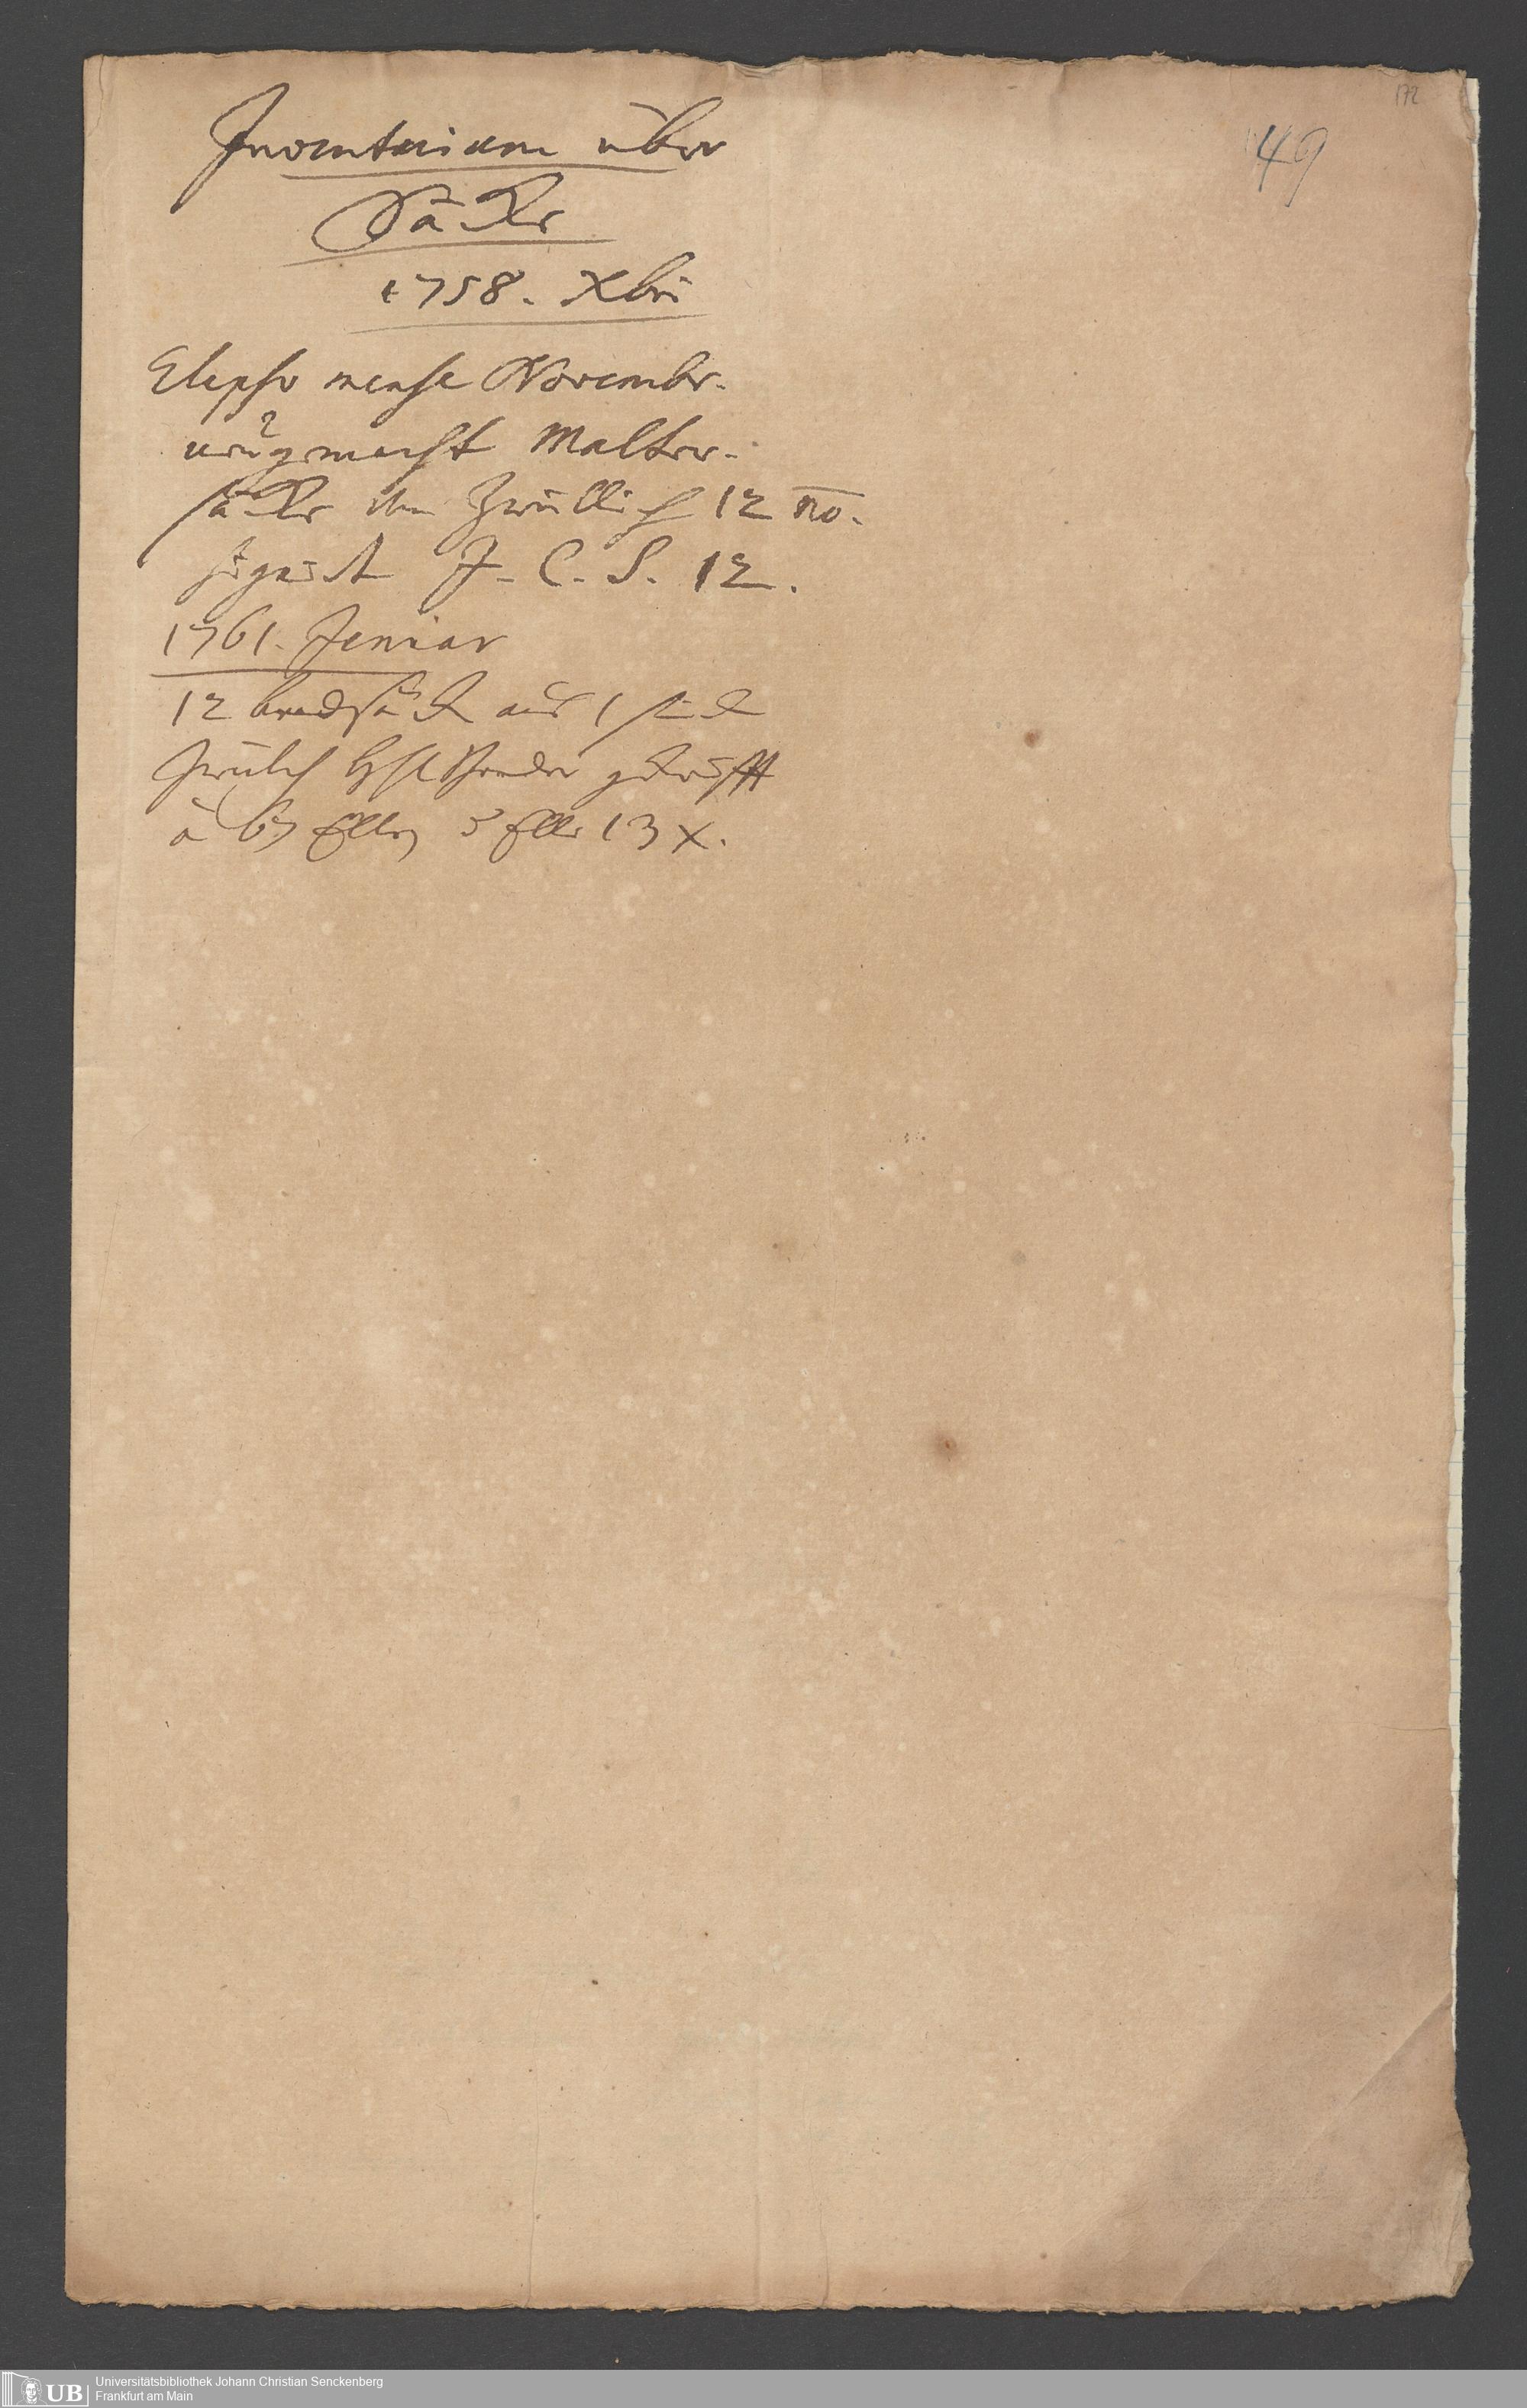 172
49
Inventarium über
Säcke
1758. Xbri
Elapso mense Novembr.
neügemacht Malter-
säcke von Zwillich 12 no.
gezeichnet J. C. S. 12.
1761. Januar
12 brodsäck aus 1 stück
Zwilch gekaufft
à 67 Ellen 5 Elle 13 x.
UB Universitätsbibliothek Johann Christian Senckenberg
Frankfurt am Main